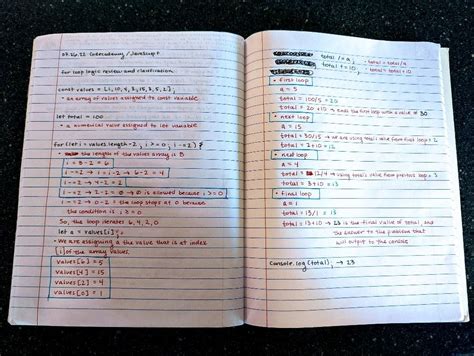 07.26.22 Codecademy / JavaScript
for loop logic review and clarification
const values = [1, 10, 4, 3, 15, 3, 5, 2];
- an array of values assigned to const variable
let total = 100
- a numerical value assigned to let variable
for (let i = values.length - 2; i >= 0; i -= 2) {
• the length of the values array is 8
i = 8 - 2 = 6
i -= 2 → i = i - 2 → 6 - 2 = 4
i -= 2 → 4 - 2 = 2
i -= 2 → 2 - 2 = 0 → 0 is allowed because i >= 0
i -= 2 → 0 - 2 = the loop stops at 0 because
the condition is i >= 0
So, the loop iterates 6, 4, 2, 0
let a = values[i];
• We are assigning a the value that is at index
[i] of the array values.
values[6] = 5
values[4] = 15
values[2] = 4
values[0] = 1
total /= a; • total = total/a
total += 10; • total = total + 10
• first loop
a = 5
total = 100/5 = 20
total = 20 + 10 → ends the first loop with a value of 30
• next loop
a = 15
total = 30/15 → we are using total's value from first loop = 2
total = 2 + 10 = 12
• next loop
a = 4
total = 12/4 → using total's value from previous loop = 3
total = 3 + 10 = 13
• final loop
a = 1
total = 13/1 = 13
total = 13 + 10 → 23 is the final value of total, and
the answer to the problem that
will output to the console
console.log(total); → 23